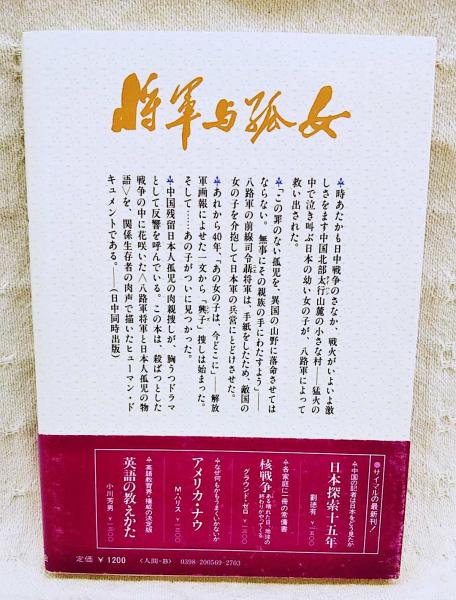 将軍与孤女
✢時あたかも日中戦争のさなか、戦火がいよいよ激
しさをます中国北部太行山麓の小さな村――猛火の
中で泣き叫ぶ日本の幼い女の子が、八路軍によって
救い出された。
✢「この罪のない孤児を、異国の山野に落命させては
ならない。無事にその親族の手にわたすよう」――
八路軍の前線司令聶将軍は、手紙をしたため、敵国の
女の子を介抱して日本軍の兵営にとどけさせた。
✢あれから40年、「あの女の子は、今どこに」――解放
軍画報によせた一文から「興子」捜しは始まった。
そして……あの子がついに見つかった。
✢中国残留日本人孤児の肉親捜しが、胸うつドラマ
として反響を呼んでいる。この本は、殺ばつとした
戦争の中に花咲いた〈八路軍将軍と日本人孤児の物
語〉を、関係生存者の肉声で描いたヒューマン・ド
キュメントである。――(日中同時出版)
●サイマルの最新刊!
✢中国の記者は日本をどう見たか
日本探索十五年
劉徳有
✢各家庭に一冊の常備書
核戦争
ある晴れた日、地球の
終わりがやってくる
グラウンド・ゼロ
✢なぜ何もかもうまくいかないか
アメリカ・ナウ
M・ハリス
✢英語教育界・権威の決定版
英語の教えかた
小川芳男
定価 ¥1200 〈人間・B〉 0398-200569-2703